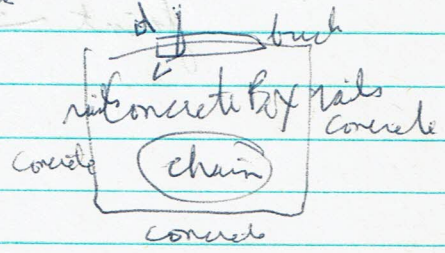 rails Concrete Box rails
concrete
concrete
chain
concrete